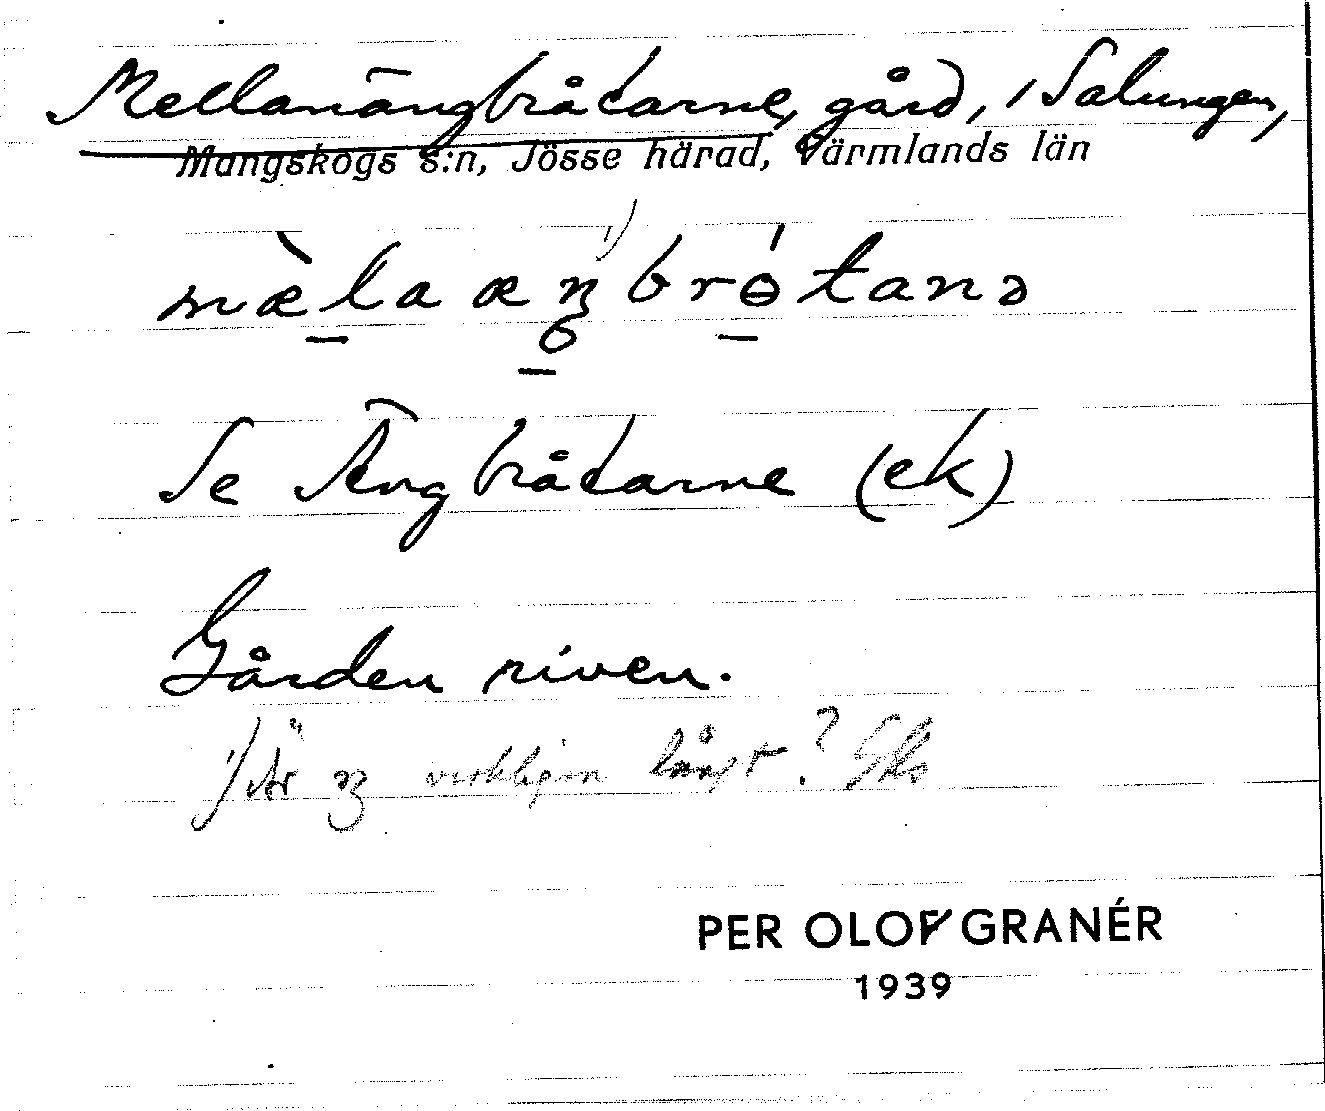 Mellanängbråtarne, gård, i Salungen,
Mangskogs s:n, Jösse härad, Värmlands län
1)
mæ̀la æŋbrɵ́tanə
Se Ängbråtarne (ek)
Gården riven.
1) Är ŋ verkligen långt?
PER OLOF GRANÉR
1939